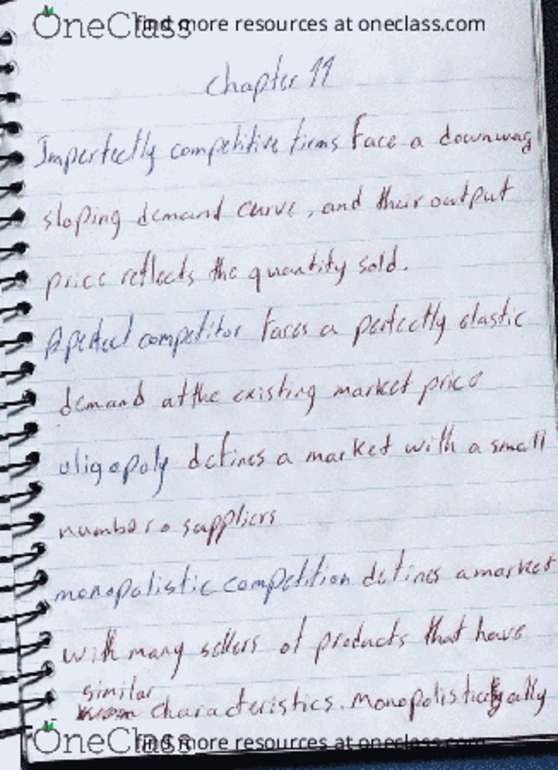 OneClass find more resources at oneclass.com
chapter 11
Imperfectly competitive firms face a downwag
sloping demand curve, and their output
price reflects the quantity sold.
A perfect competitor faces a perfectly elastic
demand at the existing market price
oligopoly defines a market with a small
number o suppliers
monopolistic competition defines a market
with many sellers of products that have
similar
characteristics. monopolistically
OneClass find more resources at oneclass.com